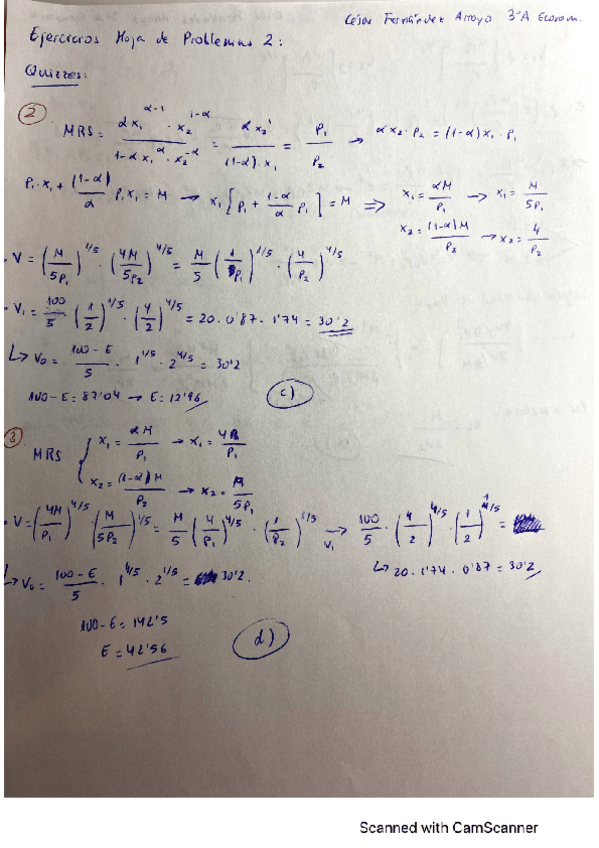 César Fernández Arroyo 3ºA Econom.
Ejercicios Hoja de Problemas 2:
Quizzes:
② MRS = αx₁^(α-1) · x₂^(1-α) / 1-αx₁^α · x₂^(-α) = αx₂' / (1-α)·x₁ = P₁/P₂ → αx₂·P₂ = (1-α)x₁·P₁
P₁·x₁ + (1-α)/α P₁x₁ = M → x₁[P₁ + 1-α/α P₁] = M ⇒ x₁ = αM/P₁ → x₁ = M/5P₁
x₂ = (1-α)M/P₂ → x₂ = 4/P₂
· V = (M/5P₁)^1/5 · (4M/5P₂)^4/5 = M/5 (1/P₁)^1/5 · (4/P₂)^4/5
· V₁ = 100/5 · (1/2)^1/5 · (4/2)^4/5 = 20 · 0'87 · 1'74 = 30'2
↳ V₀ = 100-E/5 · 1^1/5 · 2^4/5 = 30'2
100-E = 87'04 → E = 12'96
c)
③ MRS { x₁ = αM/P₁ → x₁ = 4M/P₁
x₂ = (1-α)M/P₂ → x₂ = M/5P₂
· V = (4M/P₁)^4/5 · (M/5P₂)^1/5 = M/5 (4/P₁)^4/5 · (1/P₂)^1/5 → V₁ 100/5 · (4/2)^4/5 · (1/2)^1/5 =
↳ 20 · 1'74 · 0'87 = 30'2
↳ V₀ = 100-E/5 · 1^4/5 · 2^1/5 = 30'2.
100-E = 142'5
E = 42'56
d)
Scanned with CamScanner